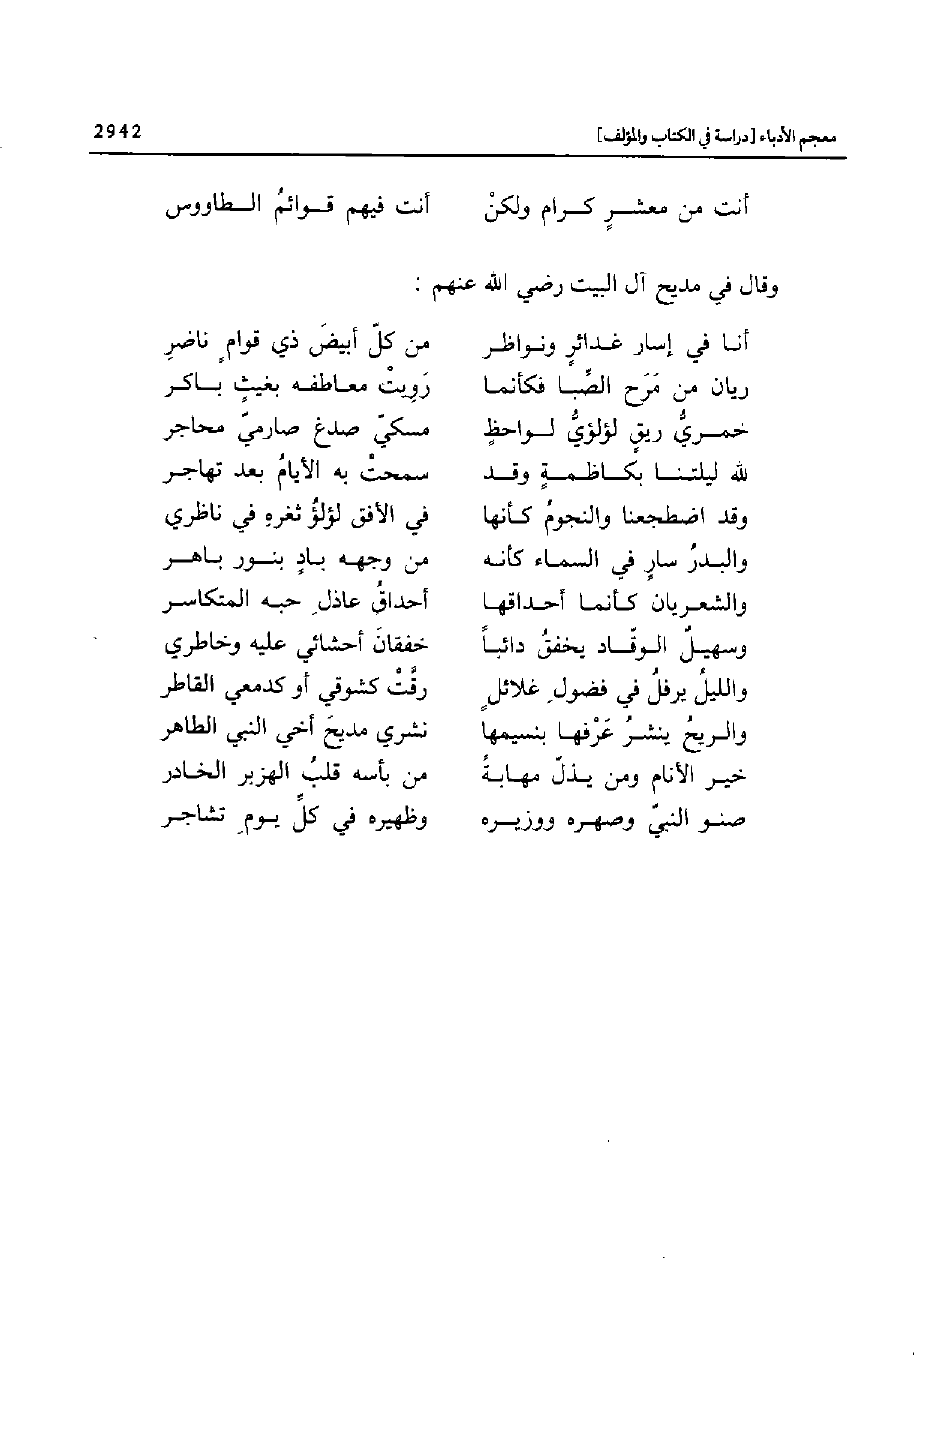 معجم الأدباء [دراسة في الكتاب والمؤلف] 2942
أنت من معشرٍ كرام ولكنْ أنت فيهم قوائمُ الطاووس
وقال في مديح آل البيت رضي الله عنهم :
أنا في إسار غدائرٍ ونواظرٍ من كلّ أبيضَ ذي قوامٍ ناضرِ
ريان من مَرَح الصِّبا فكأنما رَوِيتْ معاطفه بغيثٍ باكر
خمريُّ ريقٍ لؤلؤيُّ لواحظٍ مسكيّ صدغ صارميّ محاجر
لله ليلتنا بكاظمةٍ وقد سمحتْ به الأيامُ بعد تهاجر
وقد اضطجعنا والنجومُ كأنها في الأفق لؤلؤُ ثغرهِ في ناظري
والبدرُ سارٍ في السماء كأنه من وجهه بادٍ بنور باهر
والشعريان كأنما أحداقها أحداقُ عاذلِ حبه المتكاسر
وسهيلٌ الوقّاد يخفقُ دائباً خفقانَ أحشائي عليه وخاطري
والليلُ يرفلُ في فضولِ غلائلٍ رقَّتْ كشوقي أو كدمعي القاطر
والريحُ ينشرُ عَرْفها بنسيمها نشري مديحَ أخي النبي الطاهر
خير الأنام ومن يذلّ مهابةً من بأسه قلبُ الهزبر الخادر
صنو النبيّ وصهره ووزيره وظهيره في كلِّ يومِ تشاجر